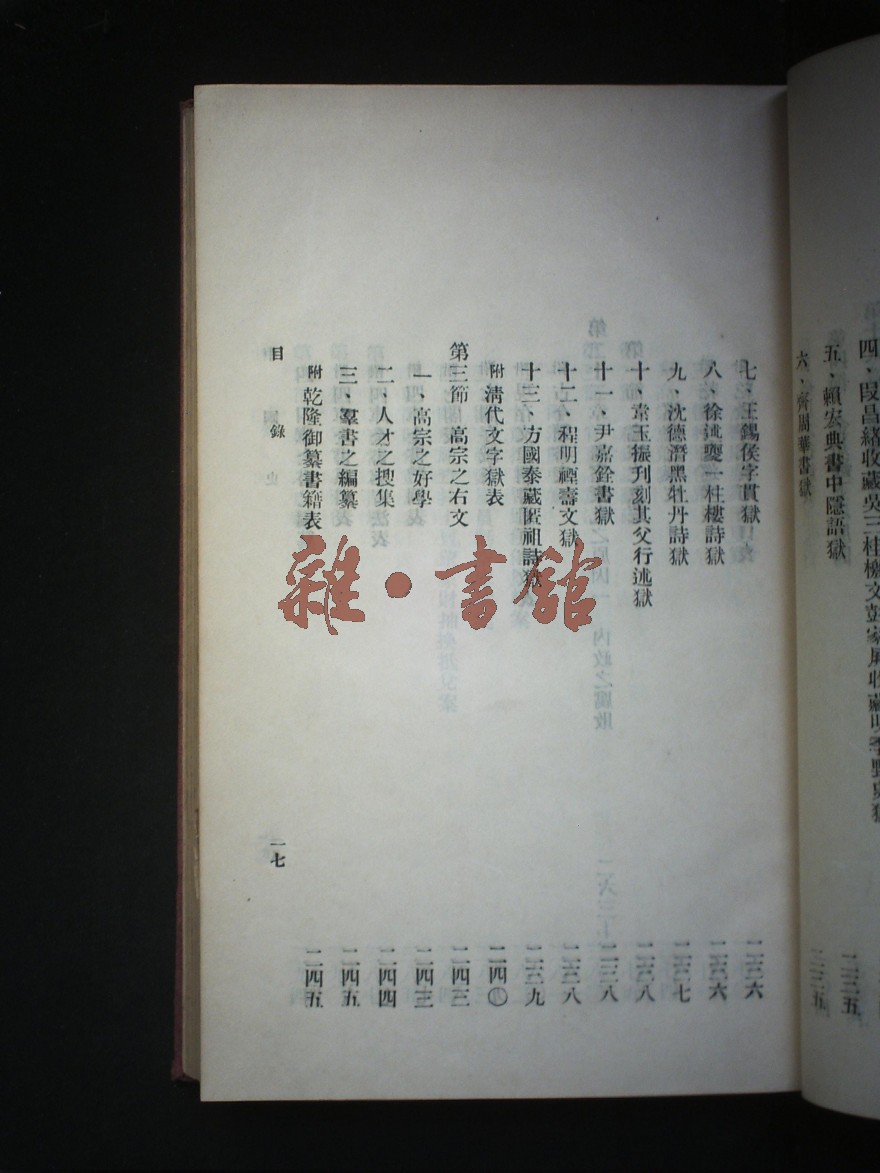 四、段昌緒收藏吳三桂檄文彭家屛收藏明季野史獄
五、賴宏典書中隱語獄 二三五
六、齊周華書獄 二三五
七、王錫侯字貫獄 二三六
八、徐述夔一柱樓詩獄 二三六
九、沈德潛黑牡丹詩獄 二三七
十、韋玉振刊刻其父行述獄 二三八
十一、尹嘉銓書獄 二三八
十二、程明禋壽文獄 二三八
十三、方國泰藏匿祖詩獄 二三九
附 清代文字獄表 二四〇
第三節 高宗之右文 二四三
一、高宗之好學 二四三
二、人才之搜集 二四四
三、羣書之編纂 二四五
附 乾隆御纂書籍表 二四五
目錄 一七
雜·書館